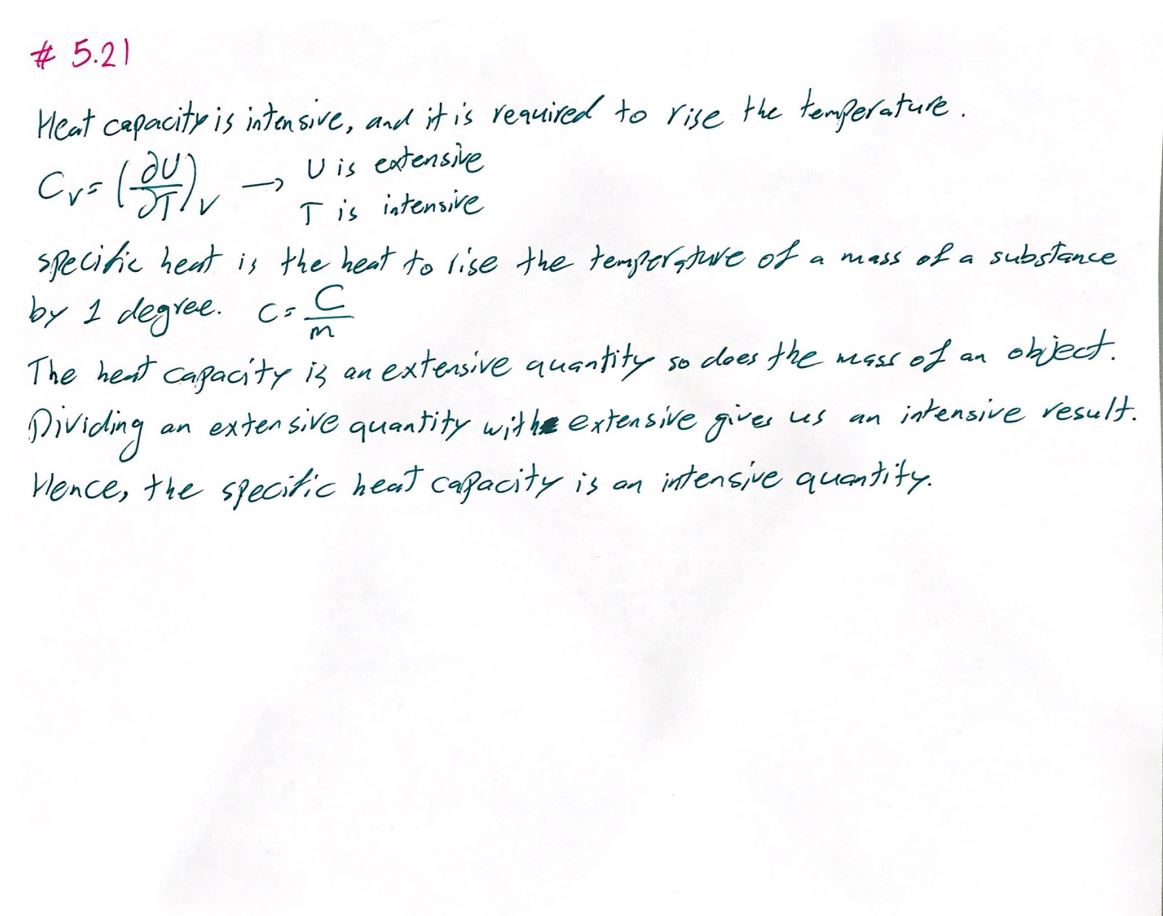 # 5.21
Heat capacity is intensive, and it is required to rise the temperature.
Cv = (∂U/∂T)v → U is extensive
T is intensive
specific heat is the heat to rise the temperature of a mass of a substance
by 1 degree. c = C/m
The heat capacity is an extensive quantity so does the mass of an object.
Dividing an extensive quantity with extensive gives us an intensive result.
Hence, the specific heat capacity is an intensive quantity.